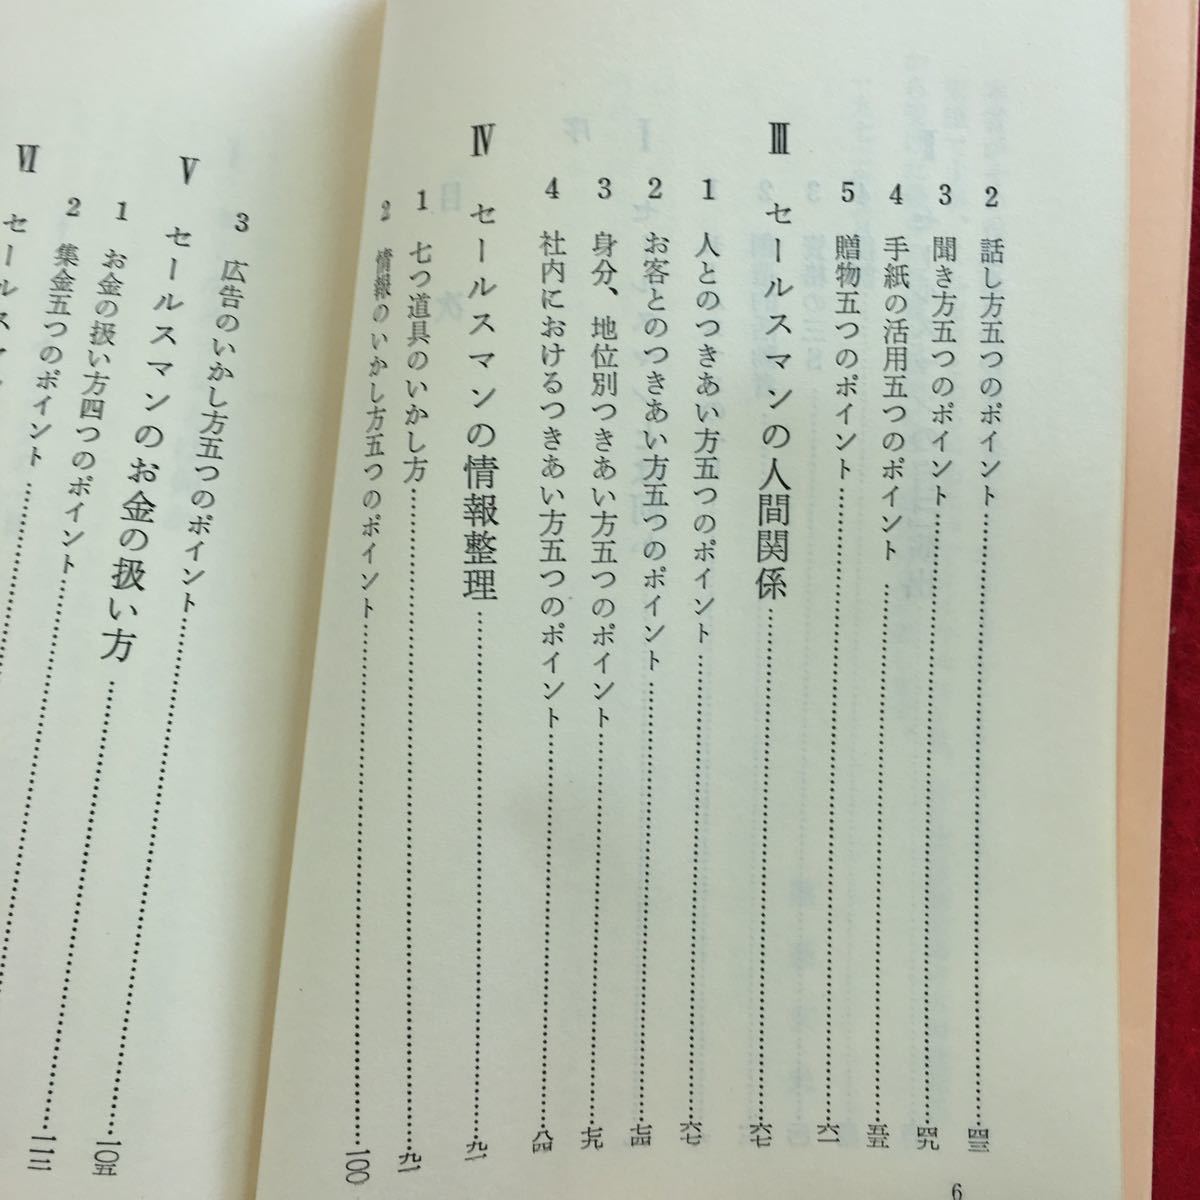 2 話し方五つのポイント……四三
3 聞き方五つのポイント……四九
4 手紙の活用五つのポイント……五五
5 贈物五つのポイント……六一
Ⅲ セールスマンの人間関係……六七
1 人とのつきあい方五つのポイント……六七
2 お客とのつきあい方五つのポイント……七四
3 身分、地位別つきあい方五つのポイント……七九
4 社内におけるつきあい方五つのポイント……八四
Ⅳ セールスマンの情報整理……九一
1 七つ道具のいかし方……九一
2 情報のいかし方五つのポイント……一〇〇
6
3 広告のいかし方五つのポイント……一〇五
Ⅴ セールスマンのお金の扱い方……一一二
1 お金の扱い方四つのポイント
2 集金五つのポイント
Ⅵ セールスマン